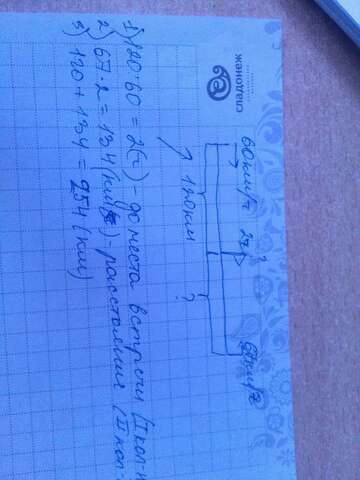 сладонеж
60км/ч 2ч ?
120км ?
1) 120:60=2(ч)-до места встречи (II
2) 67·2=134(км)-расстояние (II
3) 120+134=254(км)